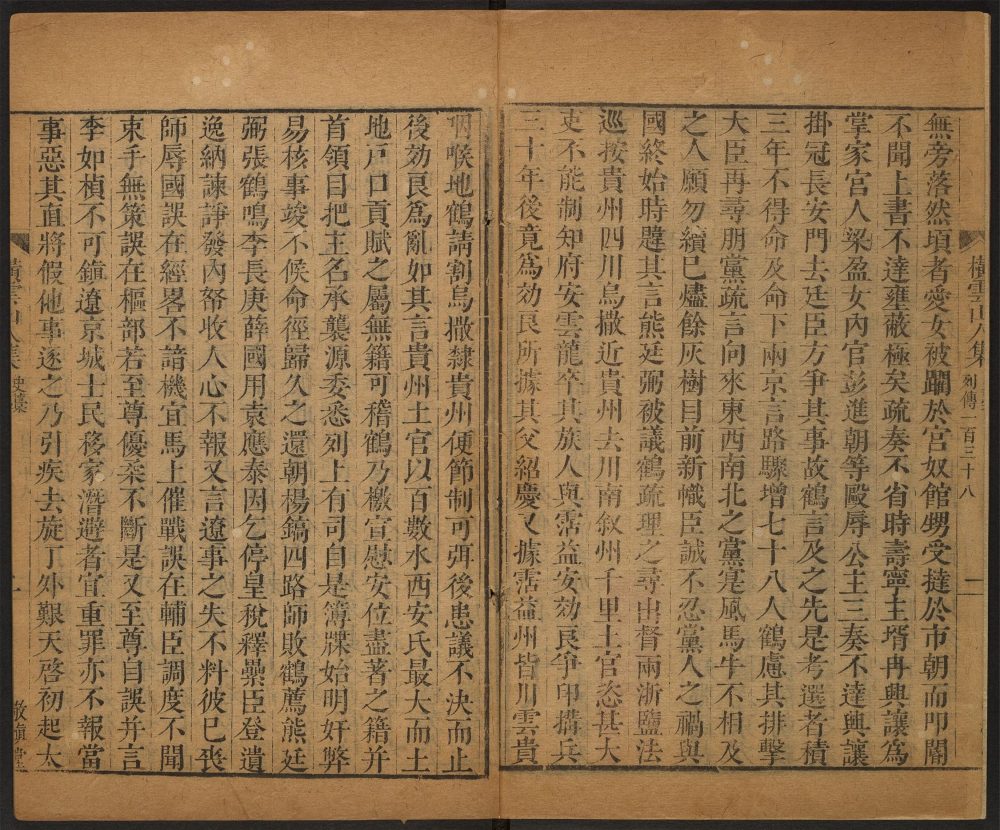 無旁落然頃者愛女被躝於宫奴館甥受撻於市朝而叩閽
不聞上書不達雍蔽極矣疏奏不省時壽寧主壻冉興讓爲
掌家宫人梁盈女內官彭進朝等毆辱公主三奏不達興讓
掛冠長安門去廷臣方爭其事故鶴言及之先是考選者積
三年不得命及命下兩京言路驟增七十八人鶴慮其排擊
大臣再尋朋黨疏言向來東西南北之黨寔風馬牛不相及
之人願勿續巳燼餘灰樹目前新幟臣誠不忍黨人之禍與
國終始時韙其言熊廷弼被議鶴疏理之尋出督兩浙鹽法
巡按貴州四川烏撒近貴州去川南叙州千里土官恣甚大
吏不能制知府安雲龍卒其族人與霑益安効良爭印搆兵
三十年後竟爲効良所據其父紹慶又據霑益州皆川雲貴
咽喉地鶴請割烏撒隸貴州便節制可弭後患議不決而止
後効良爲亂如其言貴州土官以百數水西安氏最大而土
地戸口貢賦之屬無籍可稽鶴乃檄宣慰安位盡著之籍并
首領目把主名承襲源委悉列上有司自是簿牒始明奸弊
易核事竣不候命徑歸久之還朝楊鎬四路師敗鶴薦熊廷
弼張鶴鳴李長庚薛國用袁應泰因乞停皇稅釋纍臣登遺
逸納諫諍發內帑收人心不報又言遼事之失不料彼巳喪
師辱國誤在經畧不諳機宜馬上催戰誤在輔臣調度不聞
束手無策誤在樞部若至尊優柔不斷是又至尊自誤并言
李如楨不可鎮遼京城士民移家潛避者宜重罪亦不報當
事惡其直將假他事逐之乃引疾去旋丁外艱天啓初起太
橫雲山人集 列傳 百三十八
二
橫雲山人集 史藁
一
敬愼堂